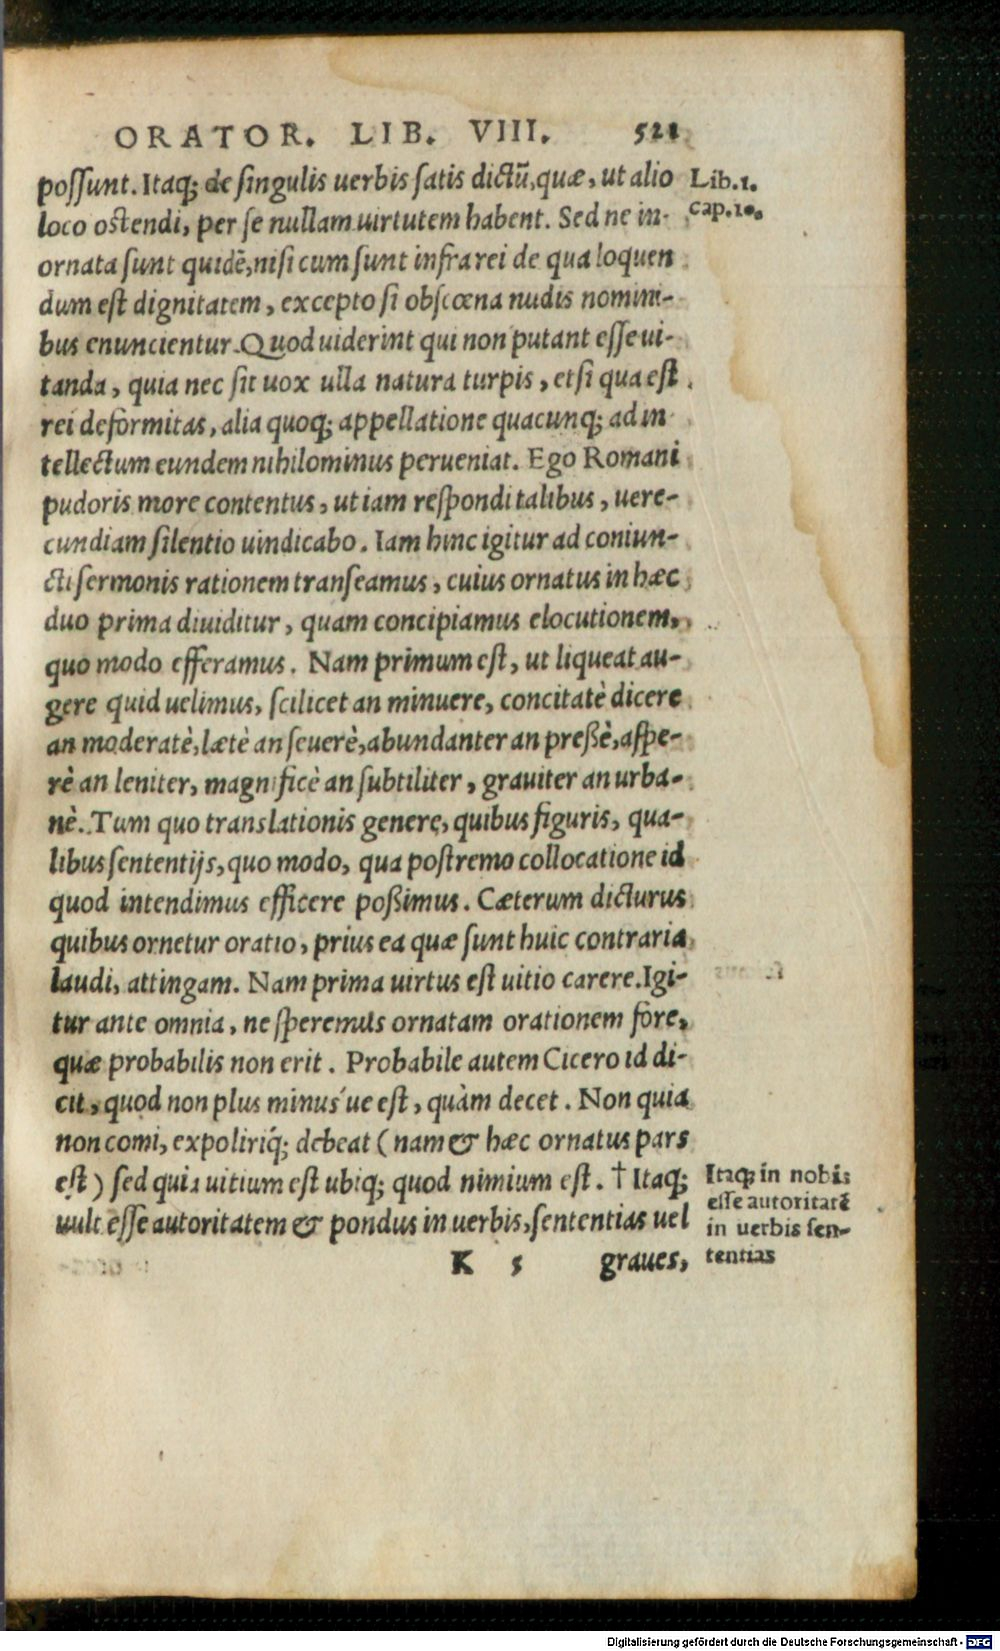 ORATOR. LIB. VIII. 521
possunt. Itaq; de singulis uerbis satis dictũ, quæ, ut alio
loco ostendi, per se nullam uirtutem habent. Sed ne in-
ornata sunt quidẽ, nisi cum sunt infra rei de qua loquen
dum est dignitatem, excepto si obscœna nudis nomini-
bus enuncientur. Quod uiderint qui non putant esse ui-
tanda, quia nec sit uox ulla natura turpis, et si qua est
rei deformitas, alia quoq; appellatione quacunq; ad in
tellectum eundem nihilominus perueniat. Ego Romani
pudoris more contentus, ut iam respondi talibus, uere-
cundiam silentio uindicabo. Iam hinc igitur ad coniun-
cti sermonis rationem transeamus, cuius ornatus in hæc
duo prima diuiditur, quam concipiamus elocutionem,
quo modo efferamus. Nam primum est, ut liqueat au-
gere quid uelimus, scilicet an minuere, concitatè dicere
an moderatè, lætè an seuerè, abundanter an preßè, aspe-
rè an leniter, magnificè an subtiliter, grauiter an urba-
nè. Tum quo translationis genere, quibus figuris, qua-
libus sententijs, quo modo, qua postremo collocatione id
quod intendimus efficere poßimus. Cæterum dicturus
quibus ornetur oratio, prius ea quæ sunt huic contraria
laudi, attingam. Nam prima uirtus est uitio carere. Igi-
tur ante omnia, ne speremus ornatam orationem fore,
quæ probabilis non erit. Probabile autem Cicero id di-
cit, quod non plus minus´ue est, quàm decet. Non quia
non comi, expoliriq́; debeat (nam & hæc ornatus pars
est) sed quia uitium est ubiq; quod nimium est. † Itaq;
uult esse autoritatem & pondus in uerbis, sententias uel
K 5 graues,
Lib.1.
cap.10.
Itaq; in nobis
esse autoritatẽ
in uerbis sen-
tentias
Digitalisierung gefördert durch die Deutsche Forschungsgemeinschaft - DFG